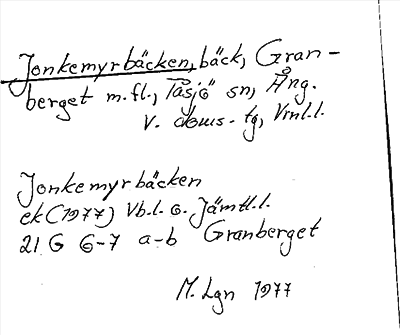 Jonkemyrbäcken, bäck, Gran-
berget m.fl., Tåsjö sn, Ång.
v. doms. tg, Vrnl.l.
Jonkemyrbäcken
ek (1977) Vb.l. o. Jämtl.l.
21 G 6-7 a-b Granberget
M. Lgn 1977